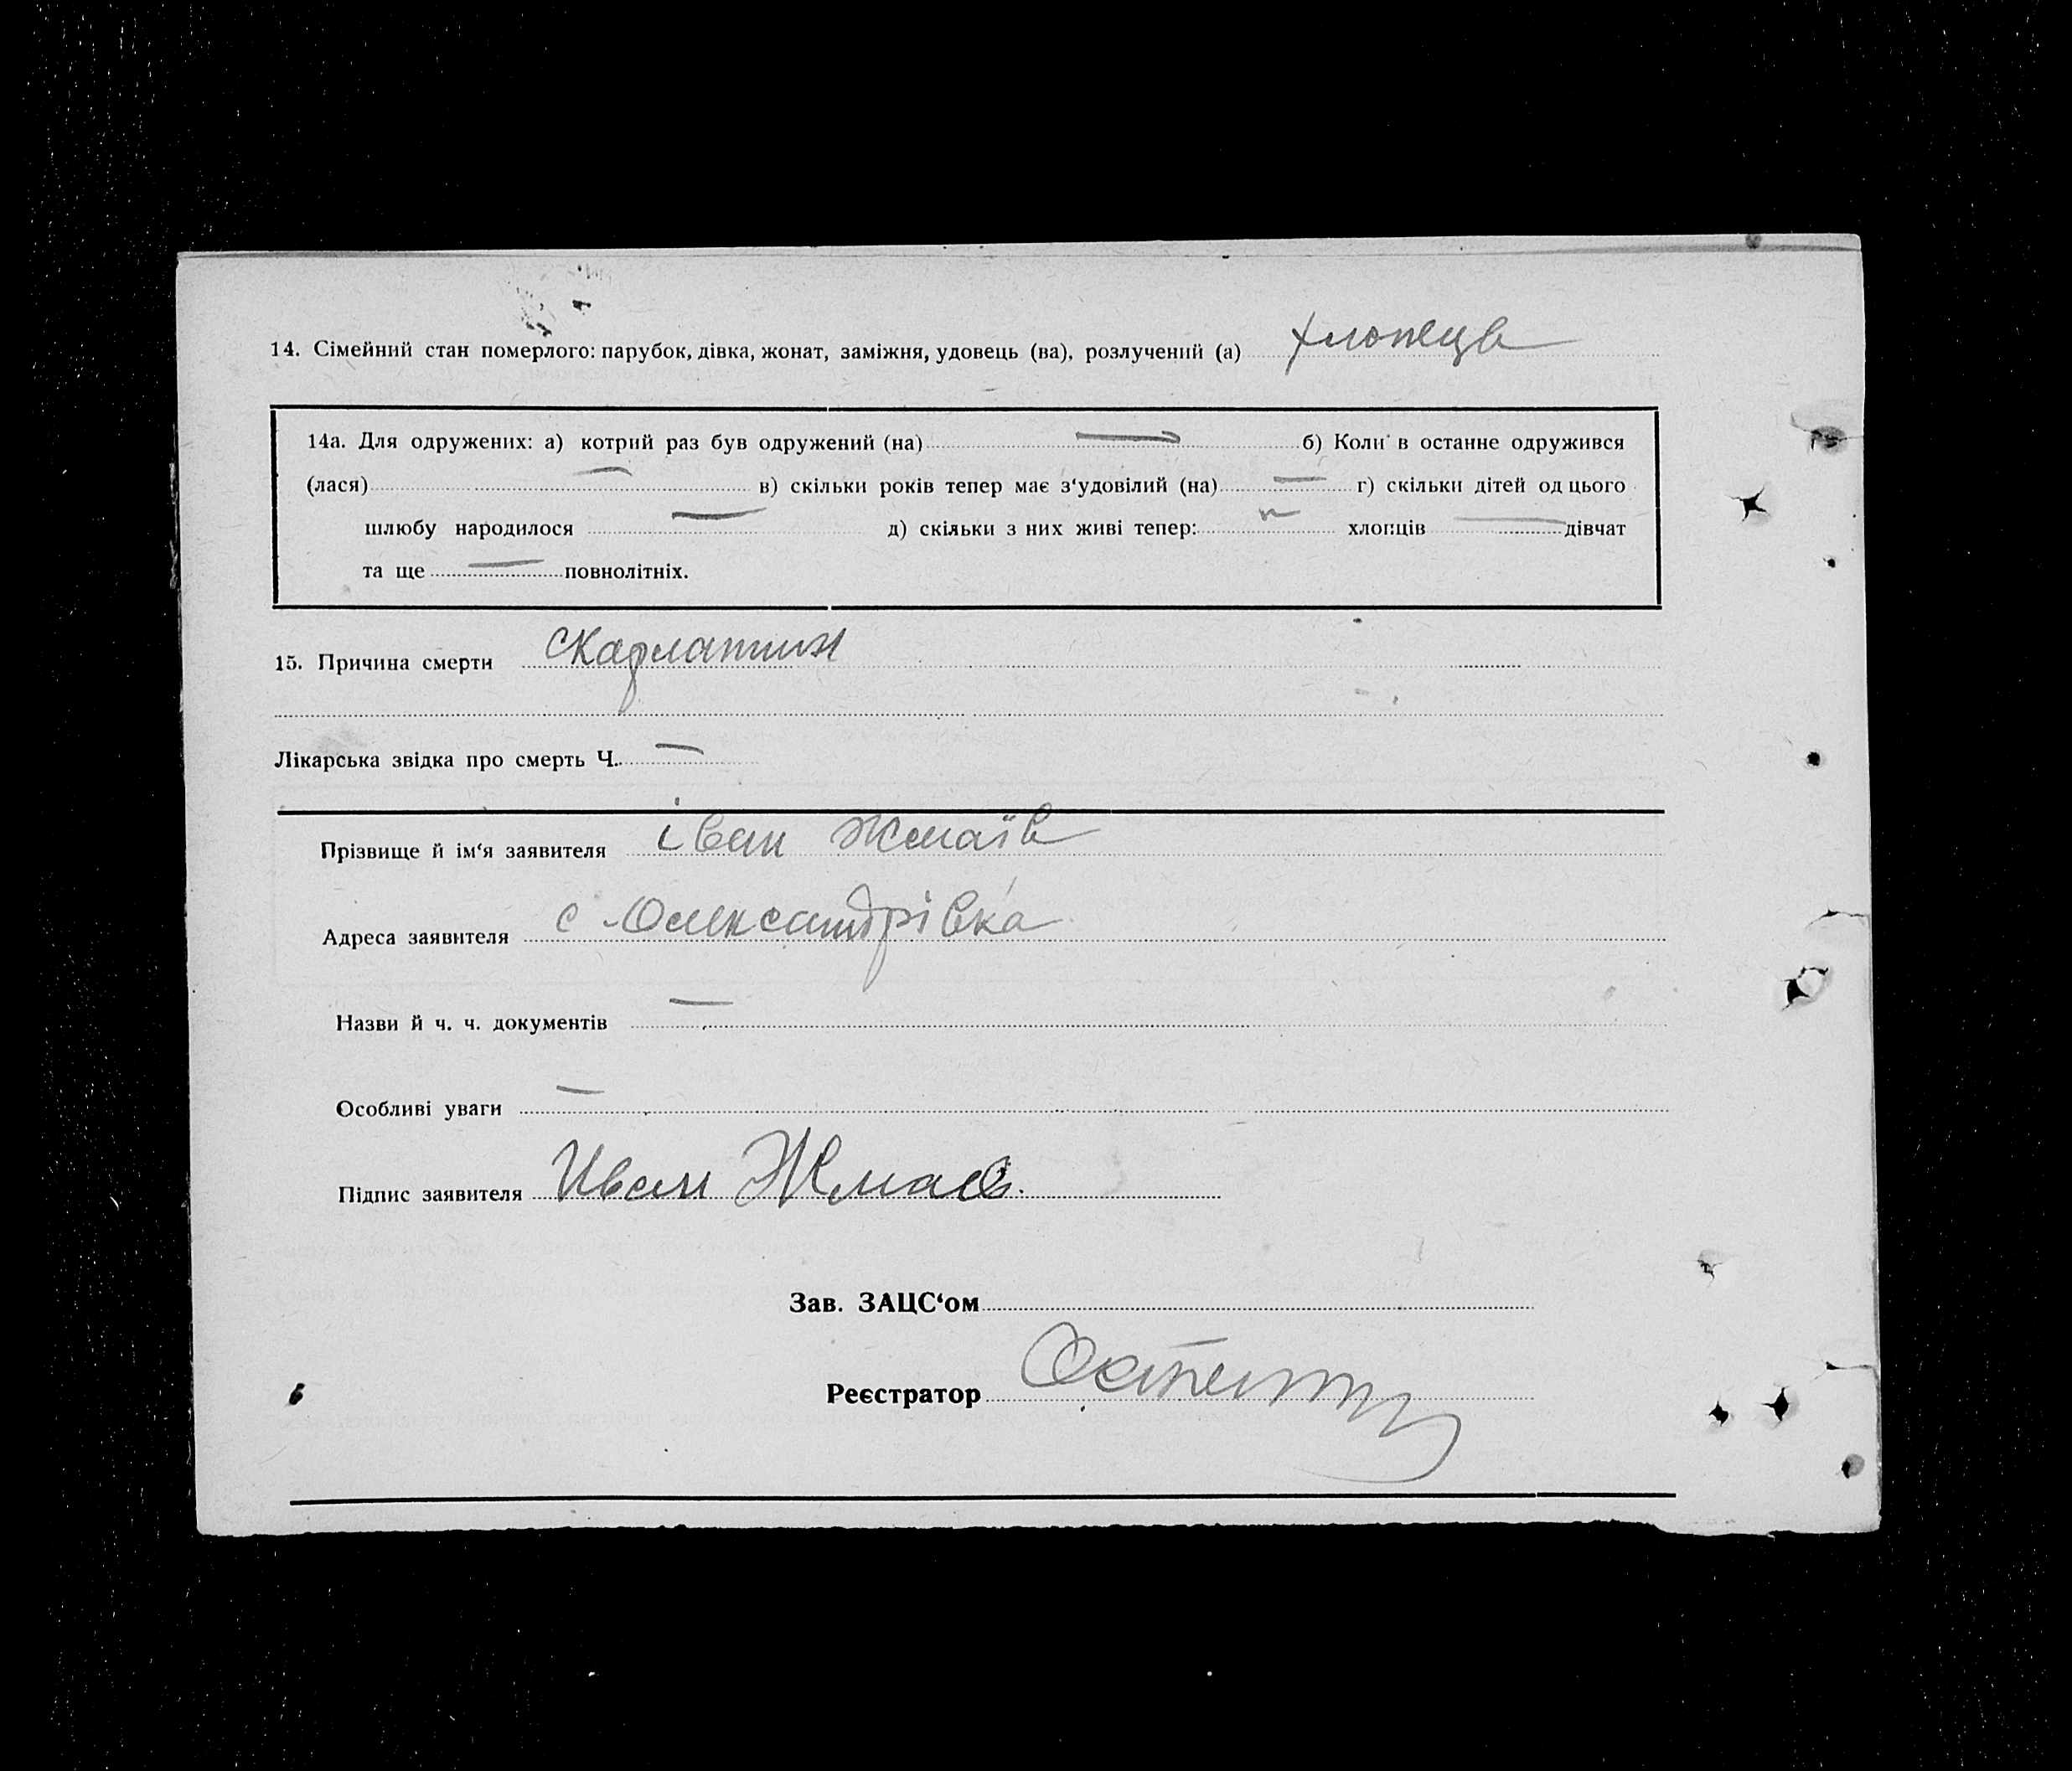 14. Сімейний стан померлого: парубок, дівка, жонат, заміжня, удовець (ва), розлучений (а) хлопець
14а. Для одружених: а) котрий раз був одружений (на) — б) Коли в останнє одружився
(лася) — в) скільки років тепер має з‘удовілий (на) — г) скільки дітей од цього
шлюбу народилося — д) скільки з них живі тепер: — хлопців — дівчат
та ще — повнолітніх.
15. Причина смерти Скарлатин
Лікарська звідка про смерть Ч. —
Прізвище й ім‘я заявителя іван Жмаїв
Адреса заявителя с Олександрівка
Назви й ч. ч. документів —
Особливі уваги —
Підпис заявителя Иван Жмаев.
Зав. ЗАЦС‘ом
Реєстратор